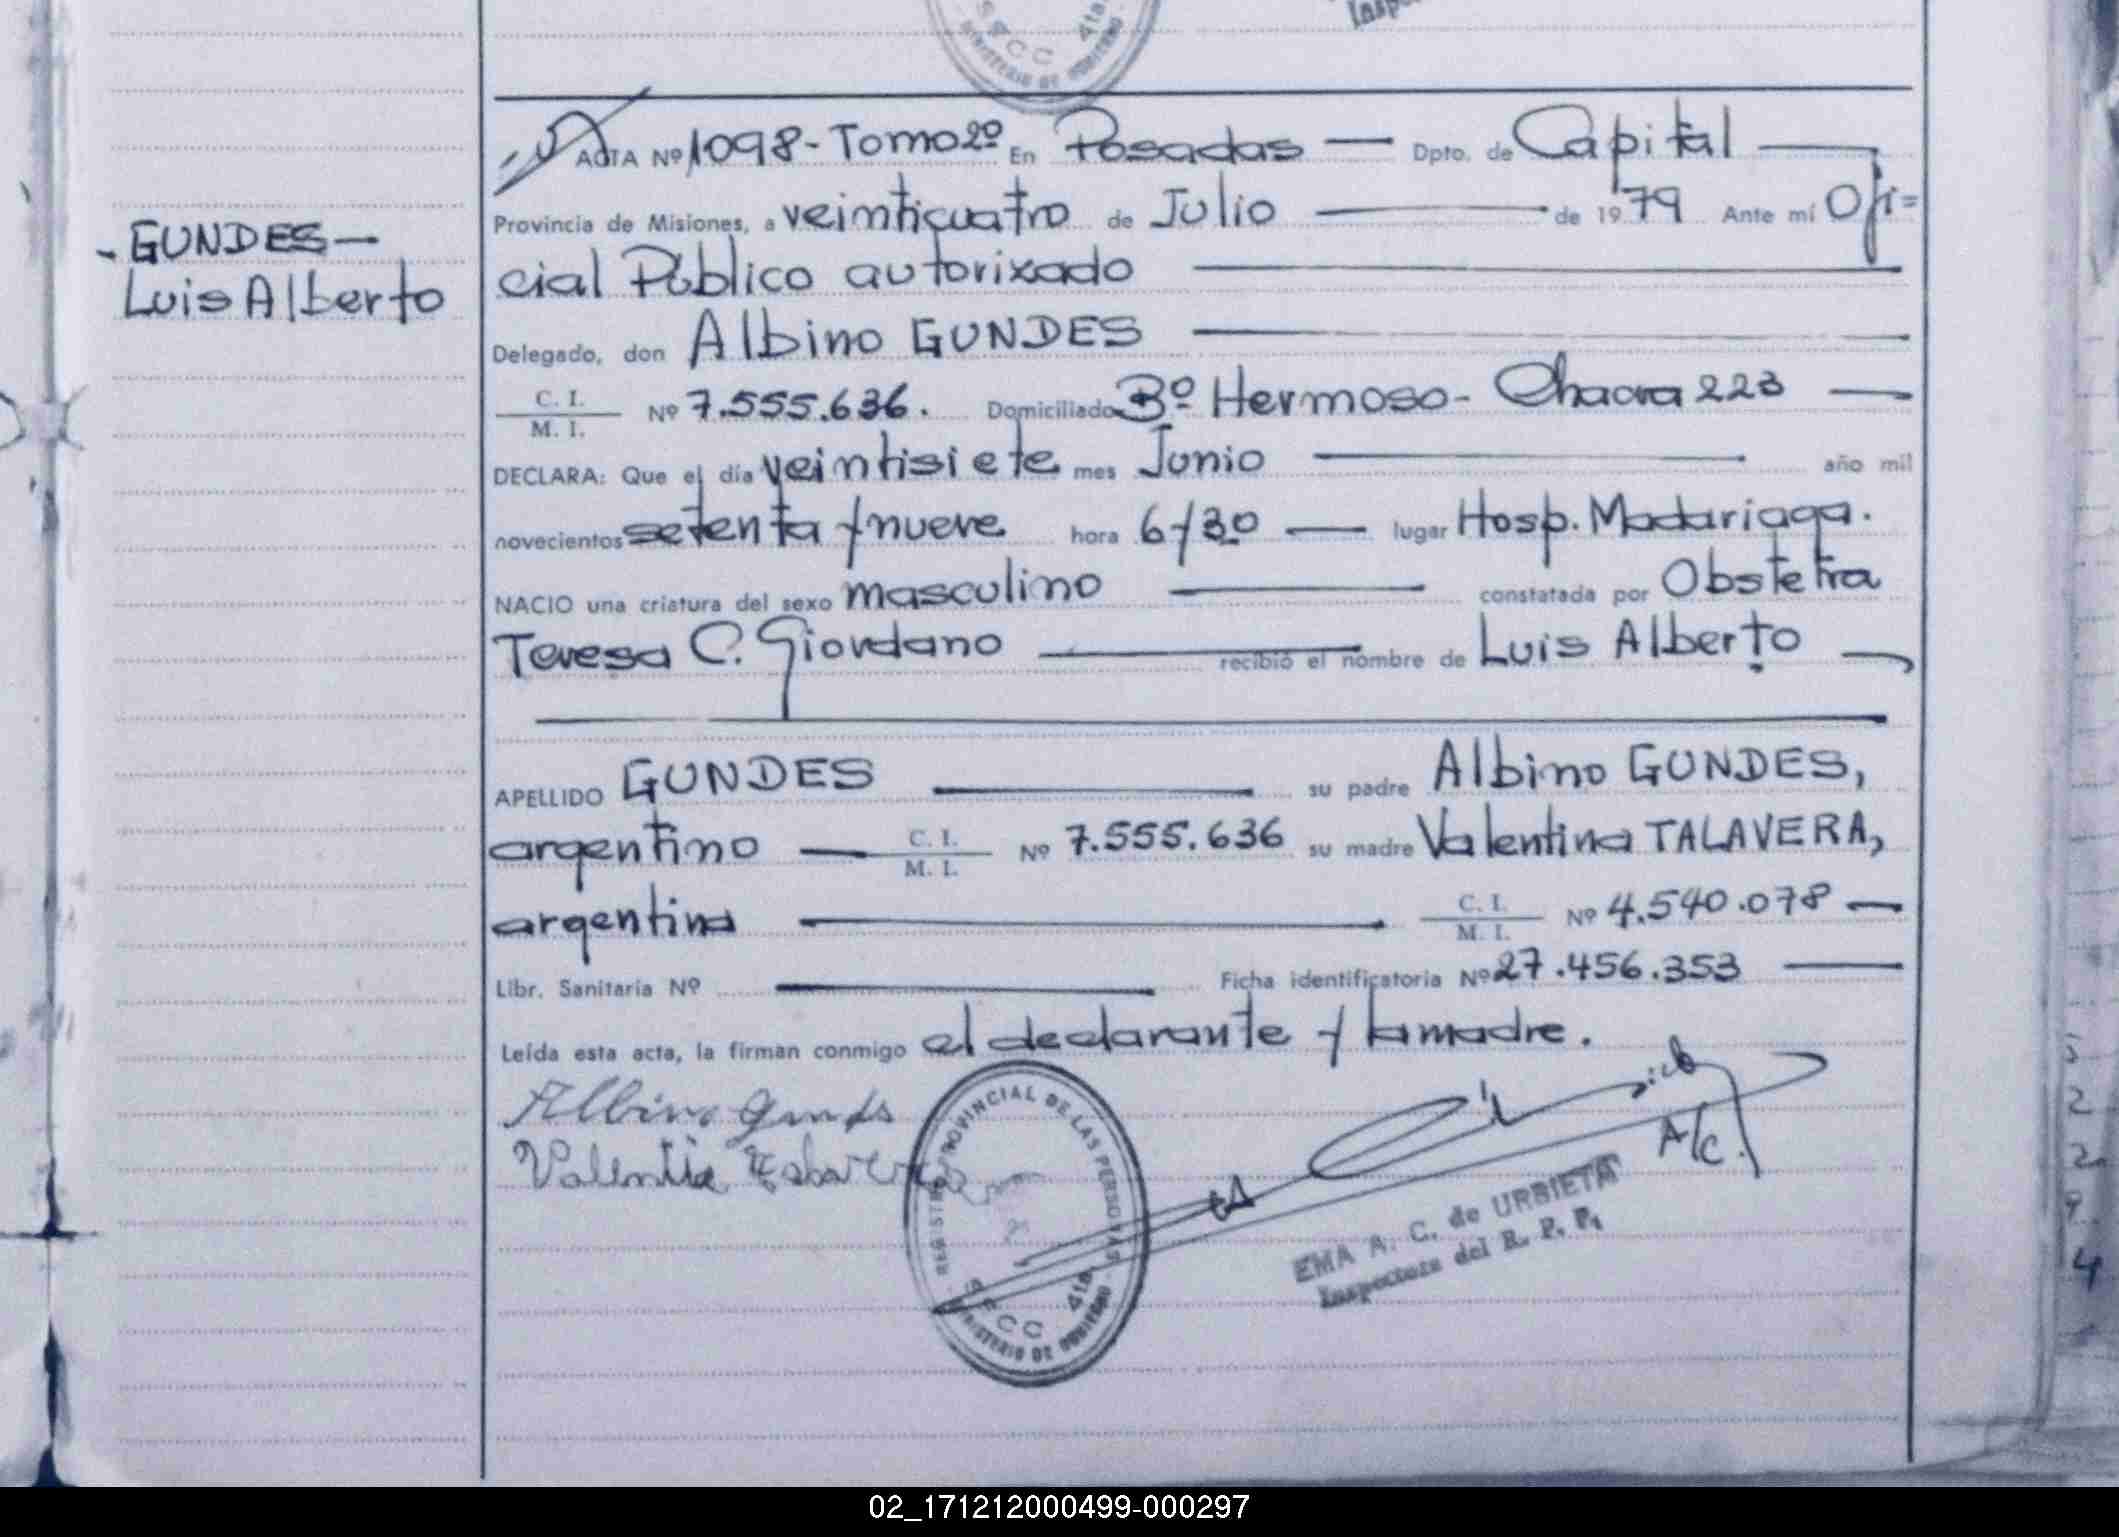 Inspec
S P C C 4ta.
MINISTERIO DE GOBIERNO
GUNDES
Luis Alberto
ACTA Nº 1098 - Tomo 2º En Posadas Dpto. de Capital
Provincia de Misiones, a veinticuatro de Julio de 1979 Ante mí Ofi=
cial Público autorizado
Delegado, don Albino GUNDES
C. I. / M. I. Nº 7.555.636. Domiciliado Bº Hermoso - Chacra 223
DECLARA: Que el día veintisiete mes Junio año mil
novecientos setenta y nueve hora 6/30 lugar Hosp. Madariaga.
NACIO una criatura del sexo masculino constatada por Obstetra
Teresa C. Giordano recibió el nombre de Luis Alberto
APELLIDO GUNDES su padre Albino GUNDES,
argentino C. I. / M. I. Nº 7.555.636 su madre Valentina TALAVERA,
argentina C. I. / M. I. Nº 4.540.078
Libr. Sanitaria Nº Ficha identificatoria Nº 27.456.353
Leída esta acta, la firman conmigo el declarante y la madre.
Albino
A/c.
REGISTRO PROVINCIAL DE LAS PERSONAS
4ta.
MINISTERIO DE GOBIERNO
EMA A. C. de URBIETA
Inspectora del R. P. P.
02_171212000499-000297